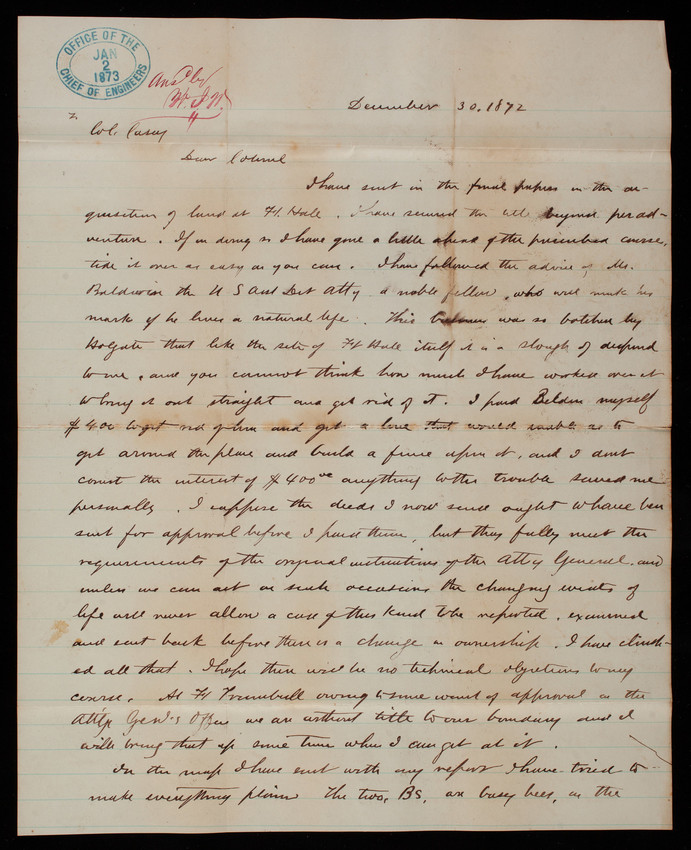 OFFICE OF THE
JAN
2
1873
CHIEF OF ENGINEERS
Ansd by
December 30, 1872
Col. Casey
Dear Colonel
I have sent in the final papers in the ac-
quisition of land at Ft. Hale. I have secured the title beyond perad-
venture. If in doing so I have gone a little ahead of the prescribed course,
tide it over as easy as you can. I have followed the advice of Mr.
Baldwin the U S Asst Dist Atty a noble fellow, who will make his
mark if he lives a natural life. This was so botched by
Holgate that like the site of Ft Hale itself it is a slough of despond
to me, and you cannot think how much I have worked over it
to bring it out straight and get rid of it. I paid Belden myself
$400 to get rid of him and get a line that would enable us to
get around the place and build a fence upon it, and I dont
count the interest of $400 00 anything to the trouble saved me
personally. I suppose the deeds I now send ought to have been
sent for approval before I paid them, but they fully meet the
requirements of the original instructions of the Atty General, and
unless we can act on such occasions the changing events of
life will never allow a case of this kind to be reported, examined
and sent back before there is a change in ownership. I have clinch-
ed all that. I hope there will be no technical objections to my
course. At Ft Trumbull owing to some want of approval in the
Atty Gen's Office we are without title to our boundary and I
will bring that up some time when I can get at it.
In the map I have sent with my report I have tried to
make everything plain The two, Bs, as busy bees, in the